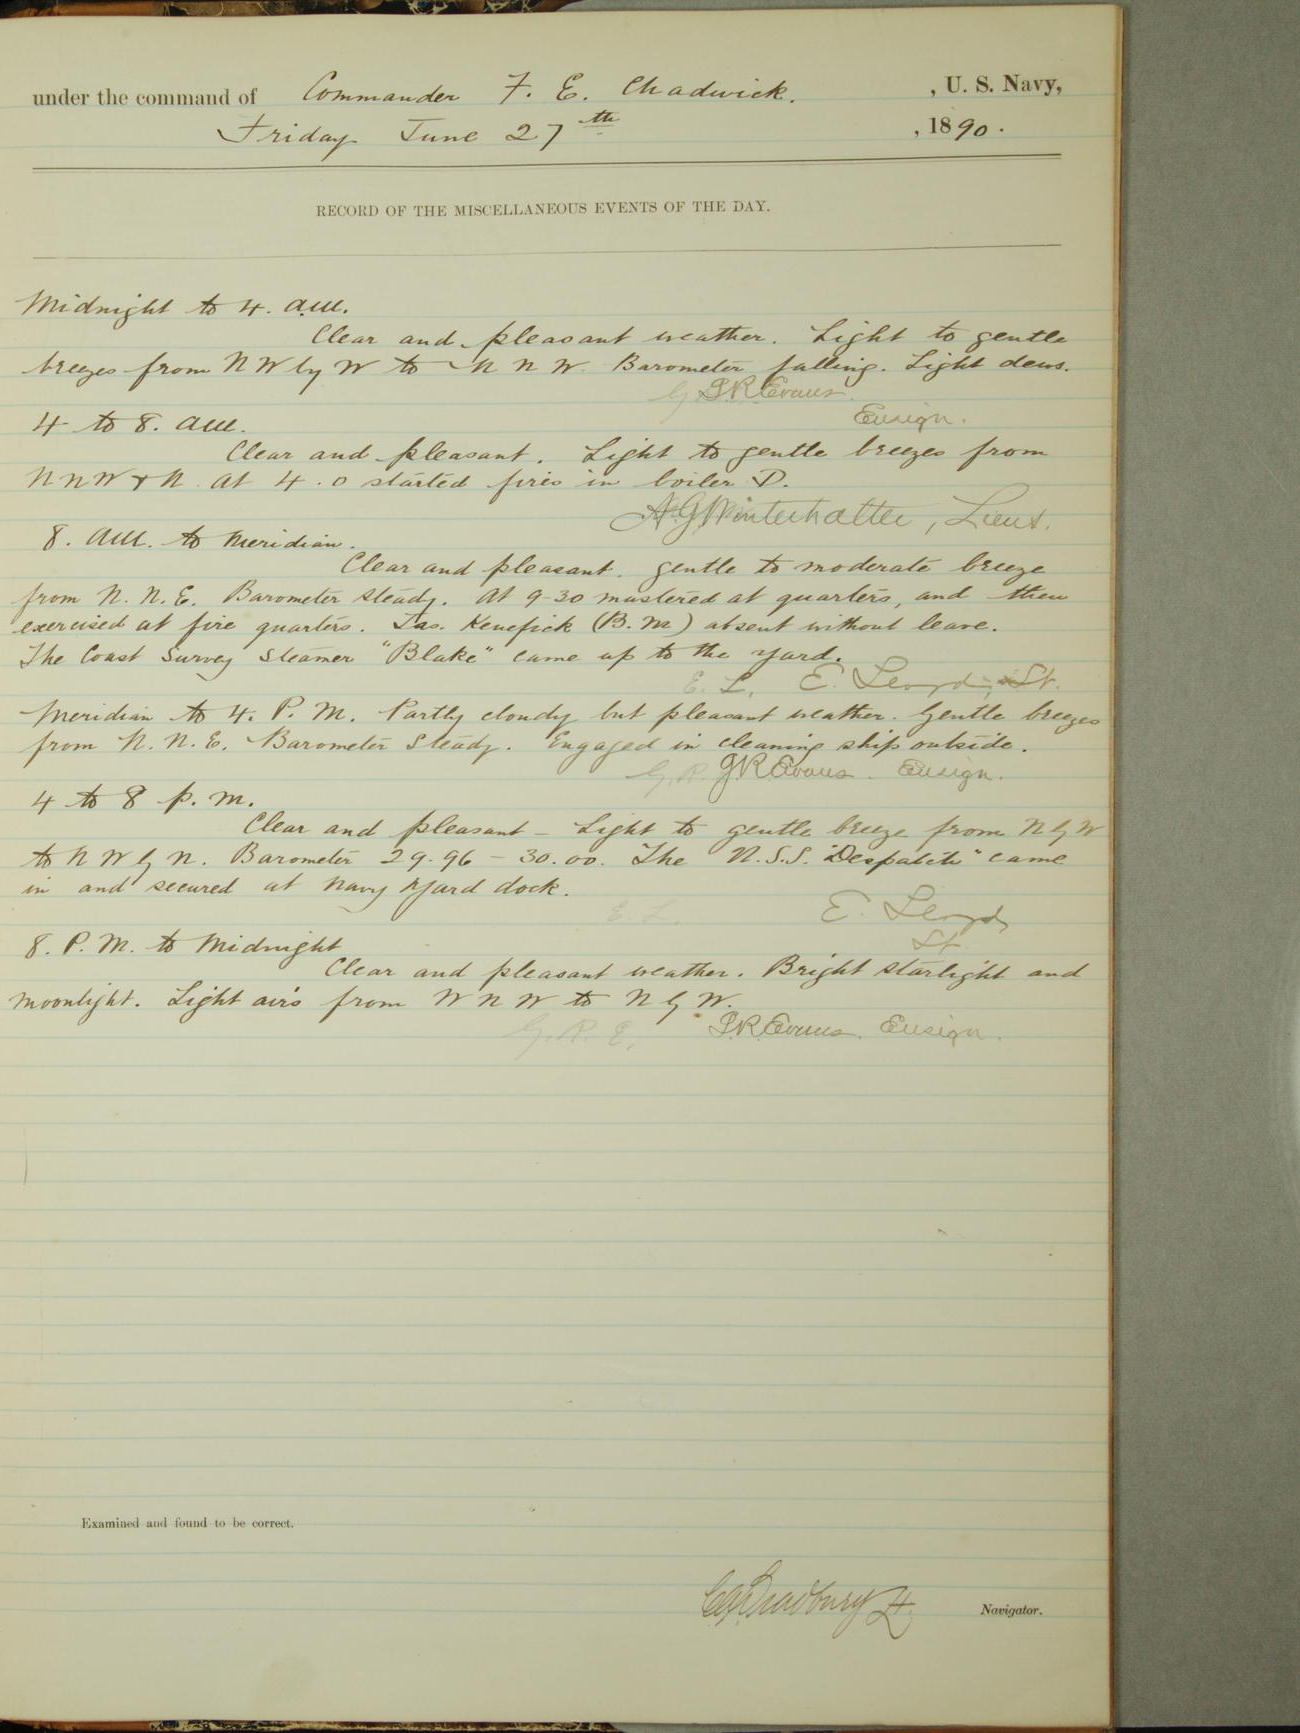 under the command of Commander F. E. Chadwick. , U. S. Navy,
Friday June 27th , 1890.
RECORD OF THE MISCELLANEOUS EVENTS OF THE DAY.
Midnight to 4. a.m.
Clear and pleasant weather. Light to gentle
breezes from NW by W to N N W. Barometer falling. Light dews.
G. R. Evans.
Ensign.
4 to 8. a.m.
Clear and pleasant. Light to gentle breezes from
N N W & N. At 4.0 started fires in boiler D.
A.G. Winterhalter, Lieut.
8. a.m. to Meridian.
Clear and pleasant. gentle to moderate breeze
from N. N. E. Barometer steady. At 9-30 mustered at quarters, and then
exercised at fire quarters. Jas. Kenefick (B. M) absent without leave.
The Coast Survey Steamer "Blake" came up to the yard.
E. L. E. Lloyd, Lt.
Meridian to 4. P. M. Partly cloudy but pleasant weather. Gentle breezes
from N. N. E. Barometer Steady. Engaged in cleaning ship outside.
G. R. G R Evans. Ensign.
4 to 8 p. m.
Clear and pleasant - Light to gentle breeze from N by W
to N W by N. Barometer 29.96 - 30.00. The U.S.S. "Despatch" came
in and secured at Navy Yard dock.
E. L. E. Lloyd
Lt.
8. P. M. to Midnight
Clear and pleasant weather. Bright starlight and
moonlight. Light airs from W N W to N by W.
G. R. E. G.R. Evans. Ensign.
Examined and found to be correct.
C A Bradbury Lt. Navigator.